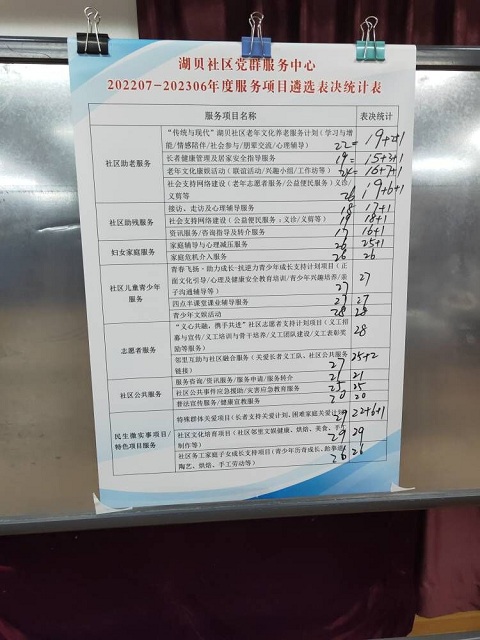 湖贝社区党群服务中心
202207-202306年度服务项目遴选表决统计表
服务项目名称 表决统计
社区助老服务
“传统与现代”湖贝社区老年文化养老服务计划（学习与增
能/情感陪伴/社会参与/朋辈交流/心理辅导） 22= 19+2+1
长者健康管理及居家安全指导服务 19= 15+3+1
老年文化康娱活动（联谊活动/兴趣小组/工作坊等） 24= 16+7+1
社会支持网络建设（老年志愿者服务/公益便民服务）义诊/
义剪等） 26 19+6+1
社区助残服务
接访、走访及心理辅导服务 18 17+1
社会支持网络建设（公益便民服务：义诊/义剪等） 19 18+1
资讯服务/咨询指导及转介服务 17 16+1
妇女家庭服务
家庭辅导与心理减压服务 26 25+1
家庭危机介入服务 26 26
社区儿童青少年
服务
青春飞扬·助力成长-抗逆力青少年成长支持计划项目（正
面文化引导/心理及健康安全教育培训/青少年兴趣培养/亲
子沟通辅导等） 27 27
四点半课堂课业辅导服务 27 27
青少年文娱活动 28 28
志愿者服务
“义心共融，携手共进”社区志愿者支持计划项目（义工招
募与宣传/义工培训与骨干培养/义工团队建设/义工表彰奖
励等服务） 28
邻里互助与社区融合服务（关爱长者义工队、社区公共服务
链接） 27 25+2
社区公共服务
服务咨询/资讯服务/服务申请/服务转介 21 21
社区公共事件应急援助/灾害应急教育服务 25 25
普法宣传服务/健康宣教服务 20 20
民生微实事项目/
特色项目服务
特殊群体关爱项目（长者支持关爱计划、困难家庭关爱计划） 29 22+6+1
社区文化培育项目（社区邻里文娱健康、烘焙、美食、手工
制作等） 29 29
社区务工家庭子女成长支持项目（青少年历奇成长、跆拳道、
陶艺、烘焙、手工劳动等） 26 26